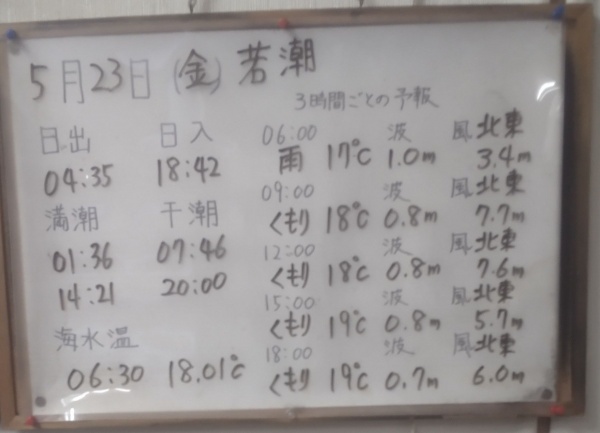 5月23日(金)若潮
3時間ごとの予報
日出 日入
04:35 18:42
満潮 干潮
01:36 07:46
14:21 20:00
海水温
06:30 18.01℃
06:00 波 風 北東
雨 17℃ 1.0m 3.4m
09:00 波 風 北東
くもり 18℃ 0.8m 7.7m
12:00 波 風 北東
くもり 18℃ 0.8m 7.6m
15:00 波 風 北東
くもり 19℃ 0.8m 5.7m
18:00 波 風 北東
くもり 19℃ 0.7m 6.0m